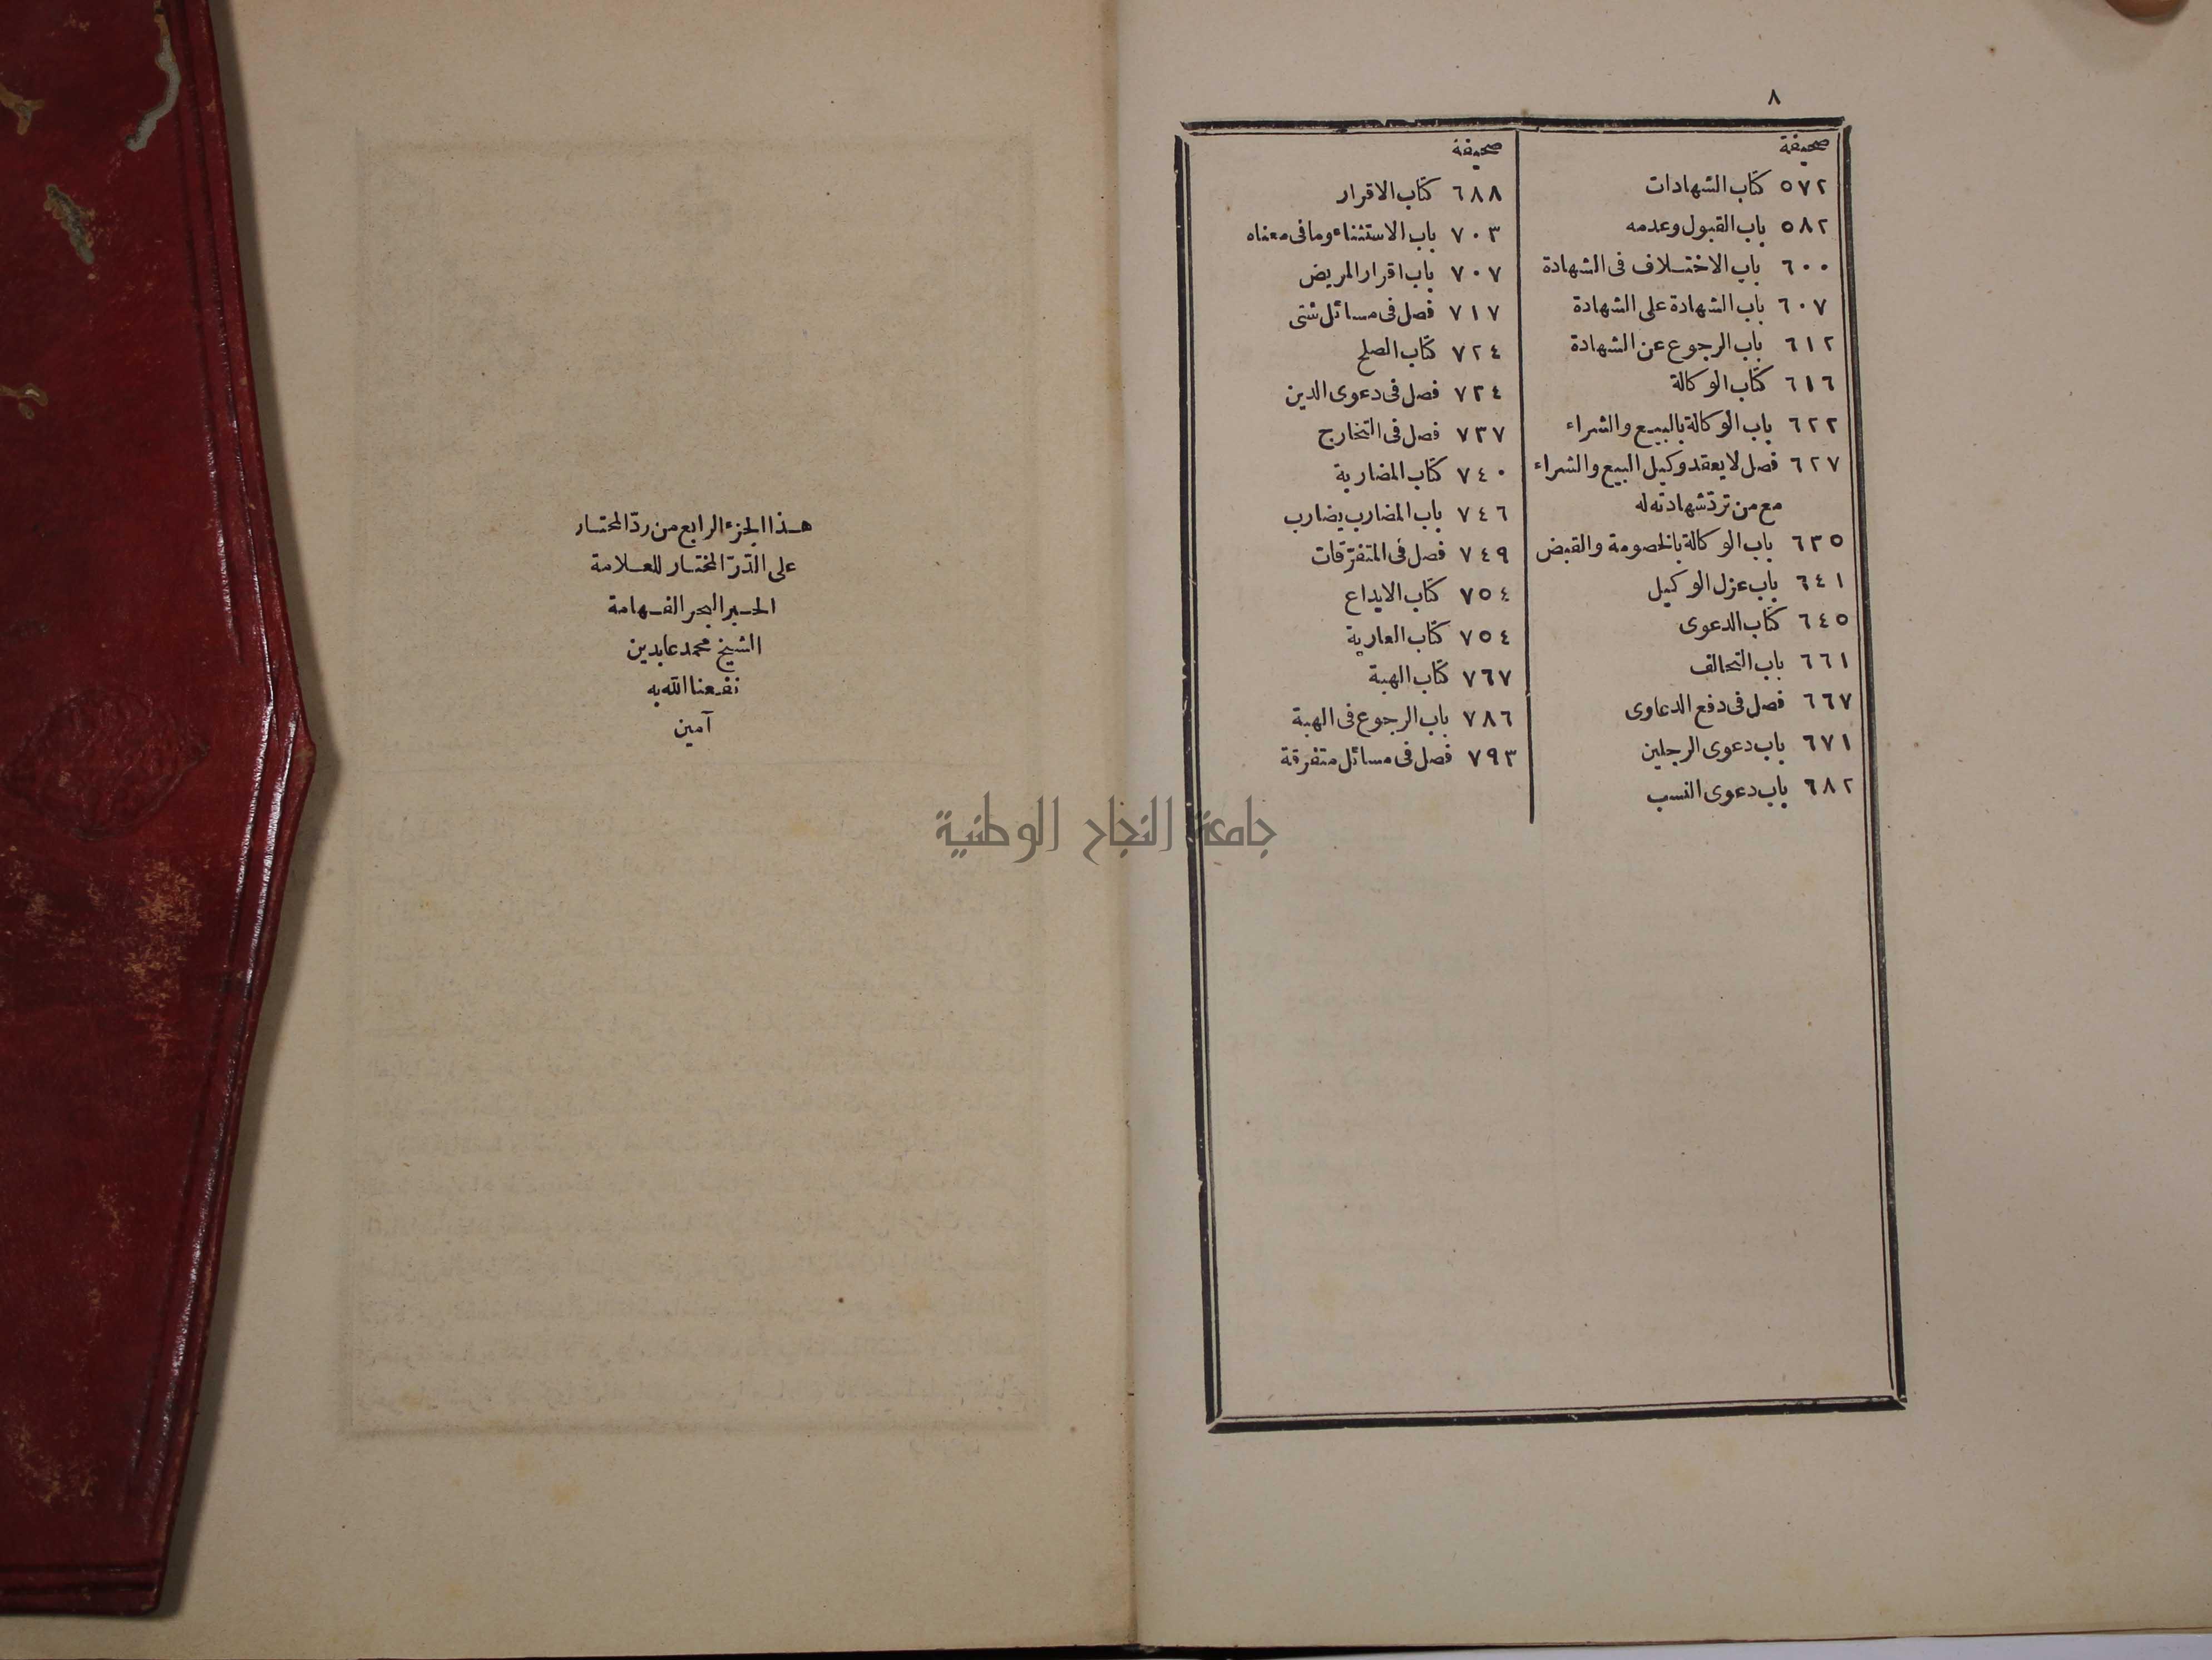 ٨
صحيفة
٥٧٢ كتاب الشهادات
٥٨٢ باب القبول وعدمه
٦٠٠ باب الاختلاف فى الشهادة
٦٠٧ باب الشهادة على الشهادة
٦١٢ باب الرجوع عن الشهادة
٦١٦ كتاب الوكالة
٦٢٢ باب الوكالة بالبيع والشراء
٦٢٧ فصل لا يعقد وكيل البيع والشراء
مع من تردّ شهادته له
٦٣٥ باب الوكالة بالخصومة والقبض
٦٤١ باب عزل الوكيل
٦٤٥ كتاب الدعوى
٦٦١ باب التحالف
٦٦٧ فصل فى دفع الدعاوى
٦٧١ باب دعوى الرجلين
٦٨٢ باب دعوى النسب
صحيفة
٦٨٨ كتاب الاقرار
٧٠٣ باب الاستثناء وما فى معناه
٧٠٧ باب اقرار المريض
٧١٧ فصل فى مسائل شتى
٧٢٤ كتاب الصلح
٧٣٤ فصل فى دعوى الدين
٧٣٧ فصل فى التخارج
٧٤٠ كتاب المضاربة
٧٤٦ باب المضارب يضارب
٧٤٩ فصل فى المتفرّقات
٧٥٤ كتاب الايداع
٧٥٤ كتاب العارية
٧٦٧ كتاب الهبة
٧٨٦ باب الرجوع فى الهبة
٧٩٣ فصل فى مسائل متفرقة
هذا الجزء الرابع من ردّ المحتار
على الدّرّ المختار للعلامة
الحبر البحر الفهامة
الشيخ محمد عابدين
نفعنا الله به
آمين
جامعة النجاح الوطنية